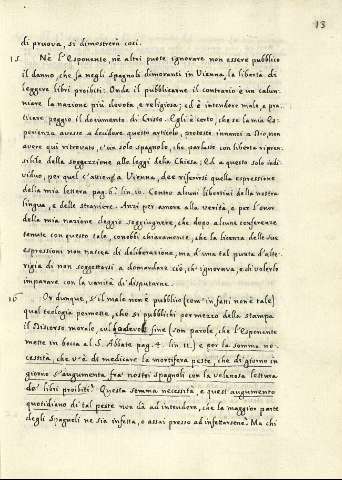 13
di pruova, si dimostrerà così.
15 Nè l'Esponente, nè altri puote ignorare non essere pubblico
il danno, che fa negli spagnoli dimoranti in Vienna, la libertà di
leggere libri proibiti: Onde il pubblicarne il contrario è un calun-
niare la nazione più devota, e religiosa; ed è intendere male, e pra-
ticare peggio il documento di Cristo. Egli è certo, che se la mia Es-
perienza avesse a decidere questo articolo, protesto innanzi a Dio, non
avere qui ritrovato, ch'un solo spagnolo, che parlasse con libertà ripren-
sibile della soggezzione alle leggi della Chiesa; Ed a questo solo indi-
viduo, per quel ch'attiene a Vienna, dee riferirsi quella espressione
della mia lettera pag. 6. lin. 10. Contro alcuni libertini della nostra
lingua, e delle straniere. Anzi per amore alla verità, e per l'onor
della mia nazione deggio soggiugnere, che dopo alcune conferenze
tenute con questo tale, conobbi chiaramente, che la licenza delle sue
espressioni non nascea di deliberazione, ma d'una tal punta d'alte-
rigia di non soggettarsi a domandare ciò, ch'ignorava, e di volerlo
imparare con la vanità di disputarne.
16 Or dunque, s'il male non è pubblico (com'in fatti non è tale)
qual teologia permette, che si pubblichi per mezzo della stampa
il Discorso morale, sul lodevole fine (son parole, che l'Esponente
mette in bocca al S. Abbate pag. 4. lin. 11.) e per la somma ne-
cessità, che v'è di medicare la mortifera peste, che di giorno in
giorno s'augumenta fra' nostri spagnoli con la velenosa lettura
de' libri proibiti? Questa somma necessità, e quest'augumento
quotidiano di tal peste non dà ad intendere, che la maggior parte
degli Spagnoli ne sia infetta, o assai presso ad infettarsene? Ma chi